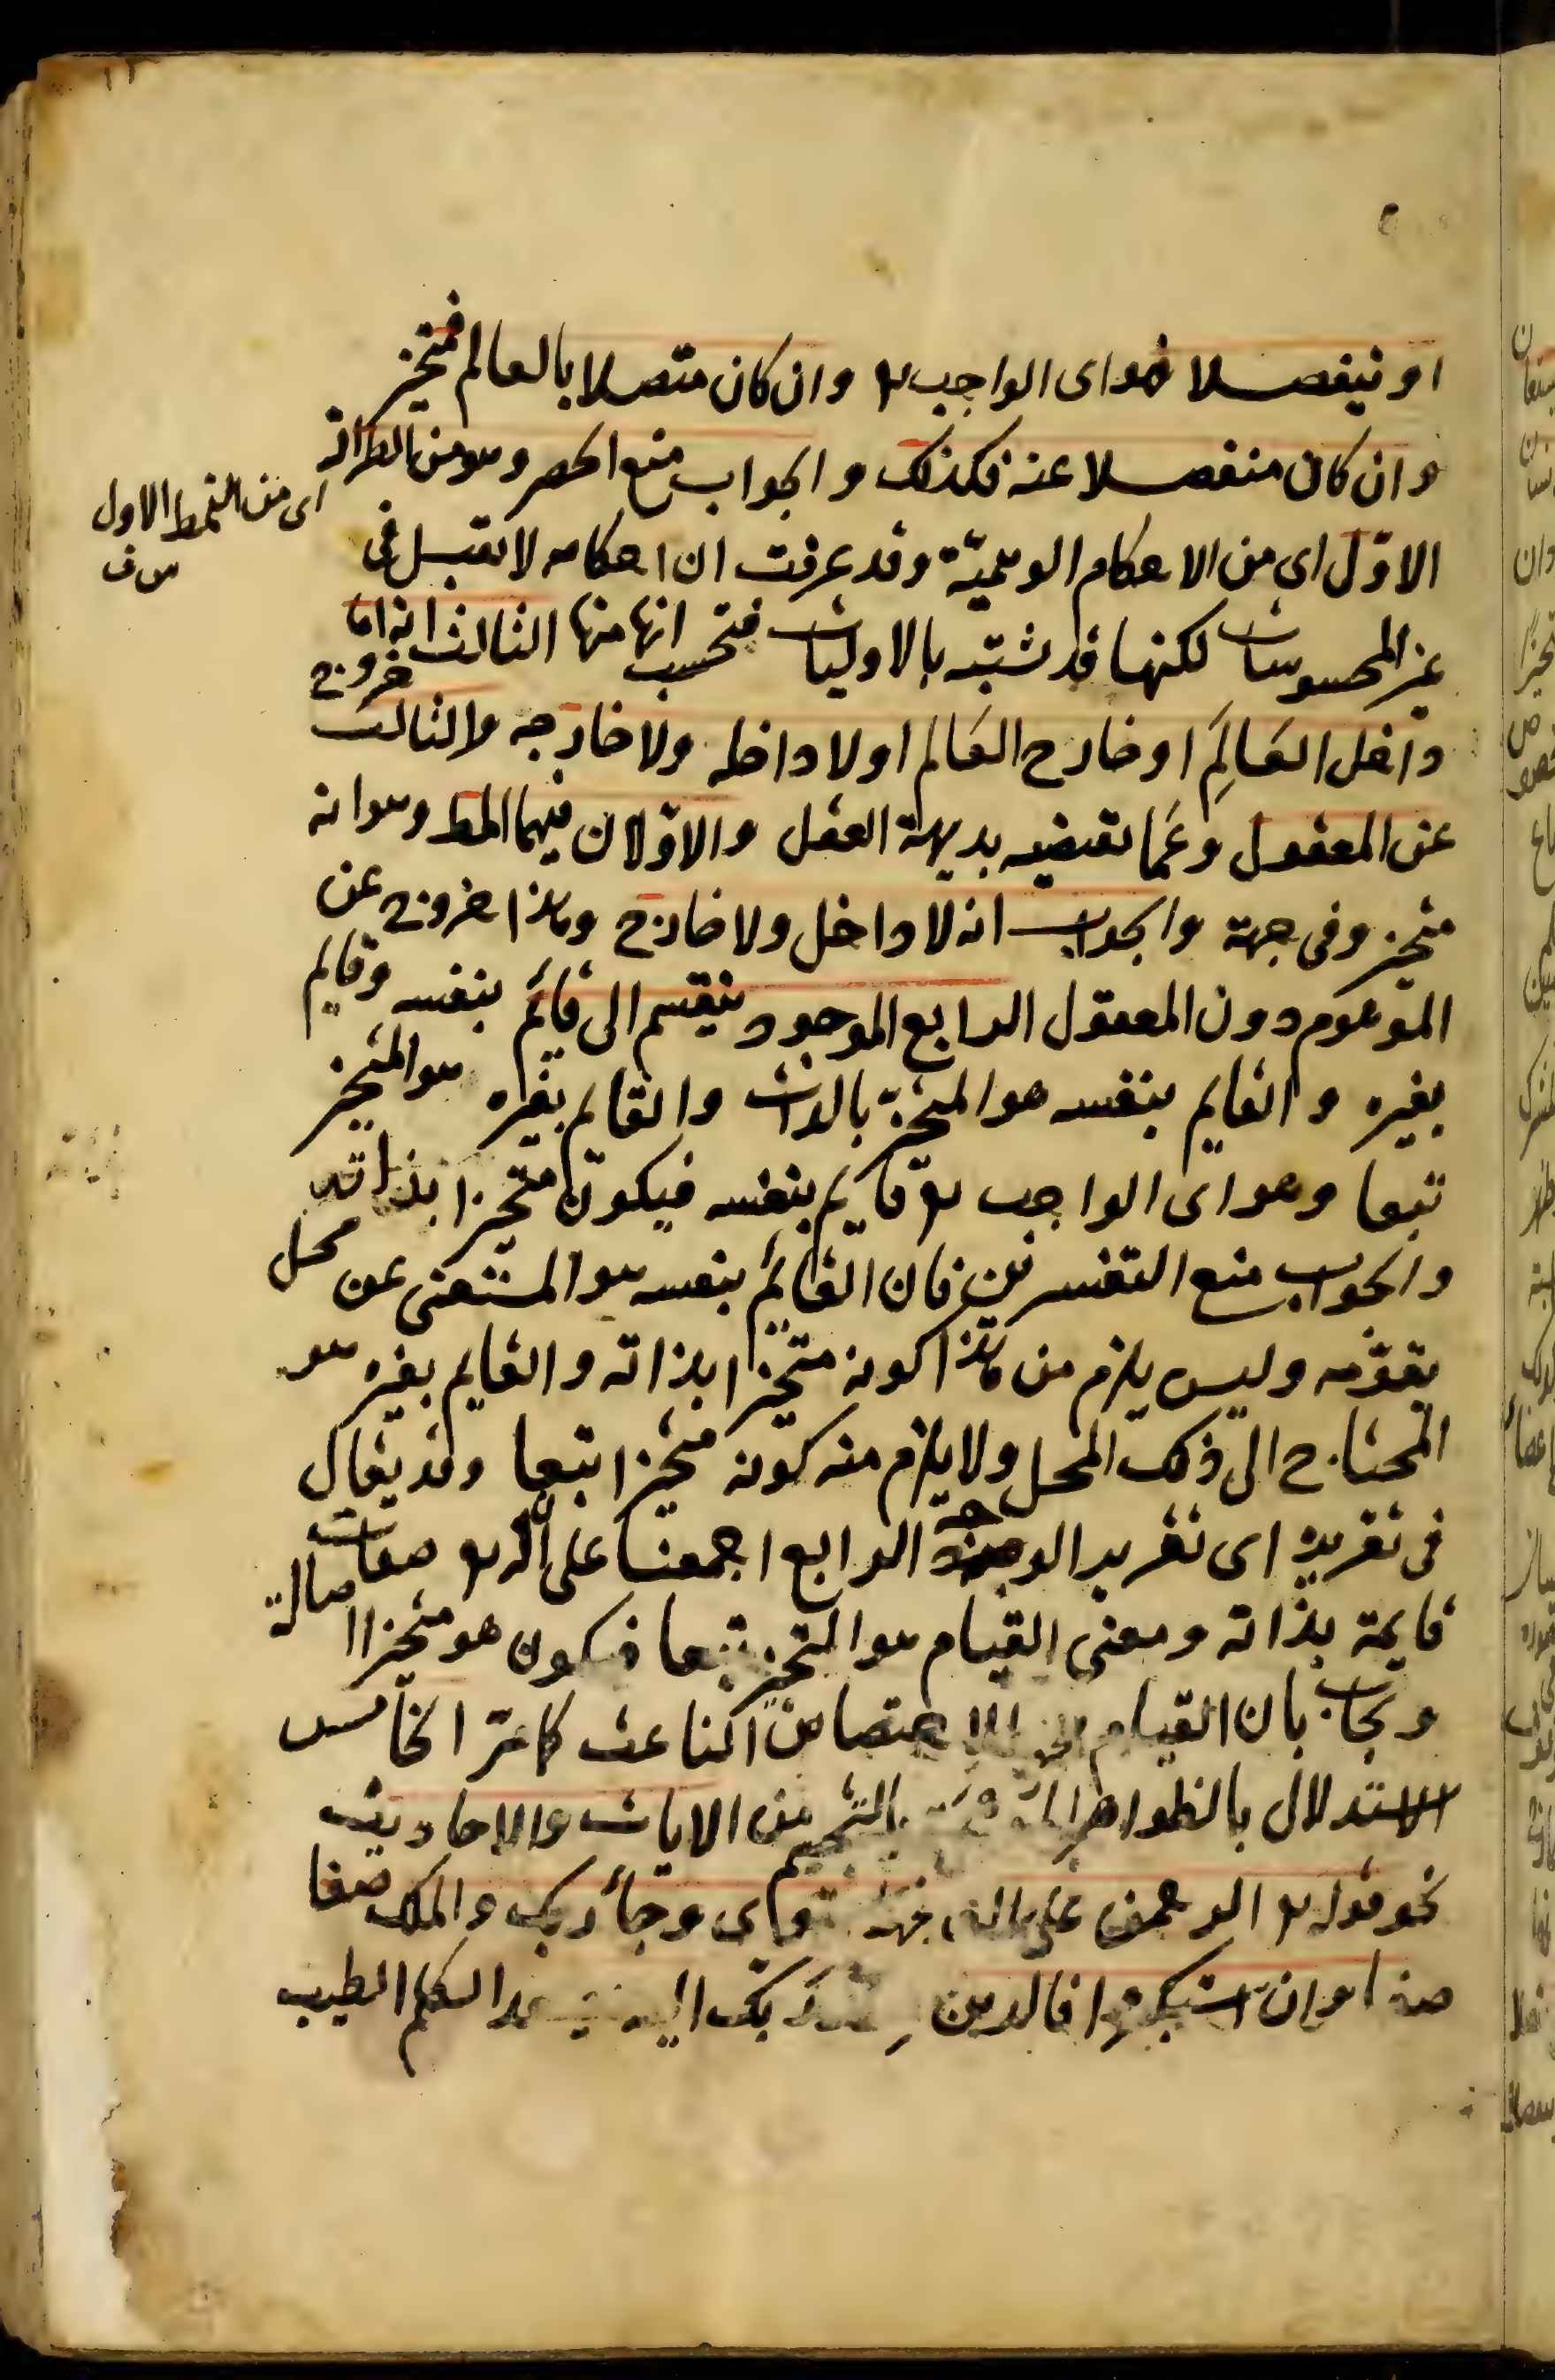 او ينفصلا فهو اى الواجب تع وان كان متصلا بالعالم فمتحيز
وان كان منفصلا عنه فكذلك والجواب منع الحصر وهو من الطراز
اى من النمط الاول
الاوّل اى من الاحكام الوهميّة وقد عرفت ان احكامه لا تقبل فى
غير المحسوسات لكنها قد تشتبه بالاوليات فتحسب انها منها الثالث انه اما
داخل العَالَمِ او خارج العَالم او لا داخله ولا خارجه والثالث خروج
عن المعقول وعَما تقتضيه بديهة العقل والاوّلان فيهما المط وهو انه
متحيز وفى جهة والجواب انه لا داخل ولا خارج وهذا خروج عن
الموهوم دون المعقول الرابع الموجود ينقسم الى قائم بنفسه وقايم
بغيره والقايم بنفسه هو المتحيز بالذات والقايم بغيره هو المتحيز
تبعا وهو اى الواجب تع قايم بنفسه فيكون متحيزا بذاته
والجواب منع التفسرين فان القائم بنفسه هو المستغنى عن محل
يقوّمه وليس يلزم من هذا كونه متحيزا بذاته والقايم بغيره هو
المحتاج الى ذلك المحل ولا يلزم منه كونه متحيزا تبعا وقد يقال
فى تقريره اى تقرير الوجه الرابع اجمعنا على ان له تع صفات
قايمة بذاته ومعنى القيام هو التحيز تبعا فيكون هو متحيزا اصالة
ويجاب بان القيام هو الاختصاص الناعت كما مرّ الخامس
الاستدلال بالظواهر بالتجسيم من الايات والاحاديث
نحو قوله تع الرحمن على العرش استوى وجأ ربك والملك صفا
صفا فان استكبروا فالذين عند ربك اليه يصعد الكلم الطيب